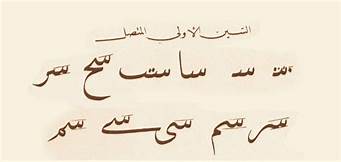 السين الاولى المتصل
سا ست سح سر
سر سم سى سے سم